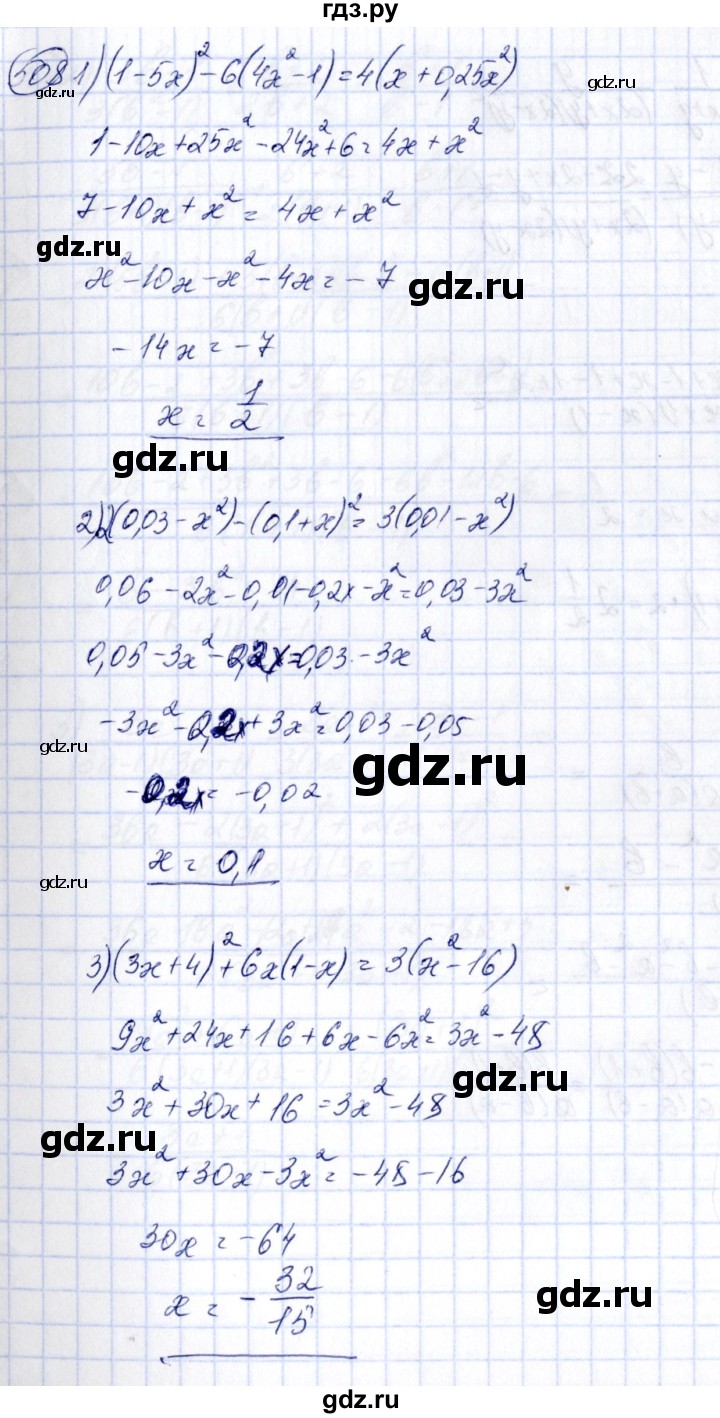 гдз.ру
508 1) (1-5x)² - 6(4x²-1) = 4(x+0,25x²)
1-10x+25x²-24x²+6=4x+x²
7-10x+x²=4x+x²
gdz.ru
x²-10x-x²-4x=-7
gdz.ru
-14x=-7
x=1/2
gdz.ru
2) 2(0,03-x²)-(0,1+x)²=3(0,01-x²)
0,06-2x²-0,01-0,2x-x²=0,03-3x²
0,05-3x²-0,2x=0,03-3x²
-3x²-0,2x+3x²=0,03-0,05
gdz.ru
gdz.ru
-0,2x=-0,02
x=0,1
gdz.ru
3) (3x+4)²+6x(1-x)=3(x²-16)
9x²+24x+16+6x-6x²=3x²-48
gdz.ru
3x²+30x+16=3x²-48
gdz.ru
3x²+30x-3x²=-48-16
30x=-64
x=-32/15
gdz.ru
gdz.ru